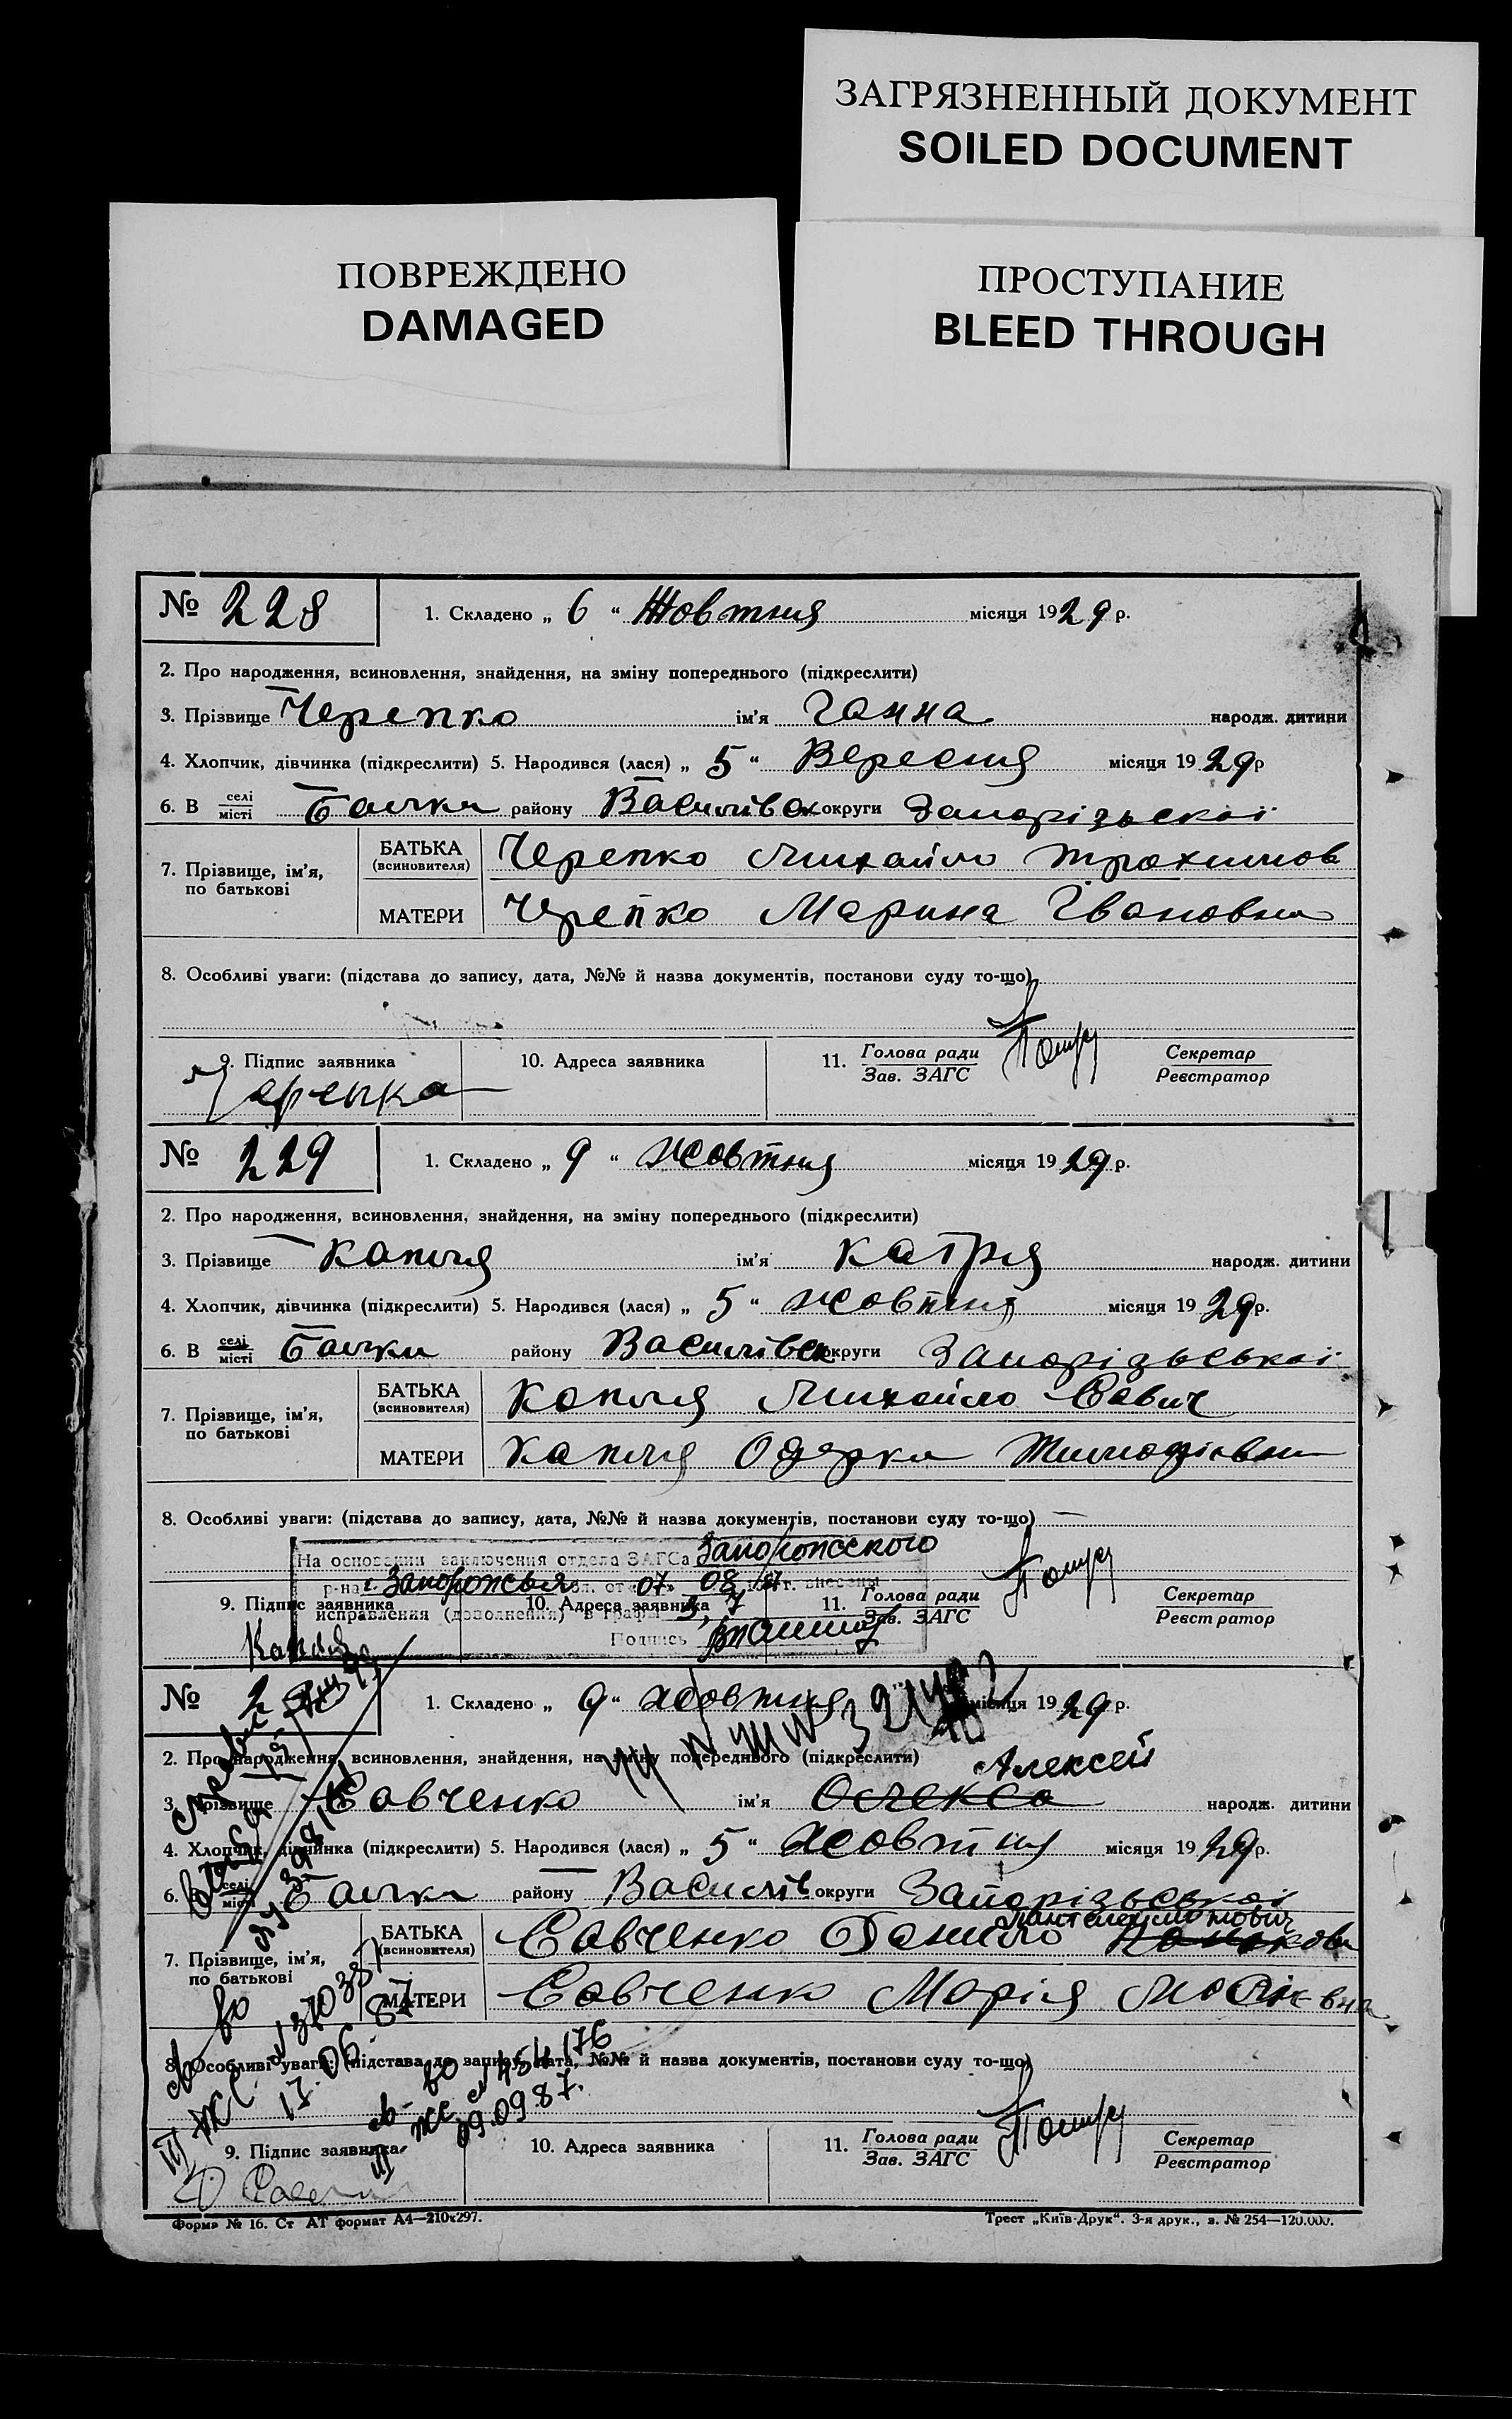 ЗАГРЯЗНЕННЫЙ ДОКУМЕНТ
SOILED DOCUMENT
ПОВРЕЖДЕНО
DAMAGED
ПРОСТУПАНИЕ
BLEED THROUGH
№ 228
1. Складено „ 6 “ Жовтня місяця 1929 р.
2. Про народження, всиновлення, знайдення, на зміну попереднього (підкреслити)
3. Прізвище Черепко ім'я Ганна народж. дитини
4. Хлопчик, дівчинка (підкреслити) 5. Народився (лася) „ 5 “ Вересня місяця 19 29р
6. В селі місті Балки району Василівск округи Запорізьскої
7. Прізвище, ім'я, по батькові
БАТЬКА (всиновителя) Черепко Михайло Трохимов
МАТЕРИ Черепко Марина Івановна
8. Особливі уваги: (підстава до запису, дата, №№ й назва документів, постанови суду то-що)
9. Підпис заявника 10. Адреса заявника 11. Голова ради Зав. ЗАГС Секретар Реєстратор
Черепка
№ 229
1. Складено „ 9 “ Жовтня місяця 19 29 р.
2. Про народження, всиновлення, знайдення, на зміну попереднього (підкреслити)
3. Прізвище Капля ім'я Катря народж. дитини
4. Хлопчик, дівчинка (підкреслити) 5. Народився (лася) „ 5 “ жовтня місяця 19 29р.
6. В селі місті Балки району Василівск округи Запорізьської
7. Прізвище, ім'я, по батькові
БАТЬКА (всиновителя) Капля Михайло Савич
МАТЕРИ Капля Одарка Тимофієвна
8. Особливі уваги: (підстава до запису, дата, №№ й назва документів, постанови суду то-що)
На основании заключения отдела ЗАГСа Запорожского
р-на г. Запорожья от 07 08 г. внесены
исправления (дополнения) в графы 3, 7
Подпись
9. Підпис заявника 10. Адреса заявника 11. Голова ради Зав. ЗАГС Секретар Реєстратор
Капля
№ 2
1. Складено „ 9 “ жовтня місяця 19 29 р.
2. Про народження, всиновлення, знайдення, на зміну попереднього (підкреслити)
Алексей
3. Прізвище Савченко ім'я Олекса народж. дитини
4. Хлопчик, дівчинка (підкреслити) 5. Народився (лася) „ 5 “ Жовтня місяця 19 29р.
6. В селі місті Балки району Василів округи Запорізьської
7. Прізвище, ім'я, по батькові
Пантелеймонович
БАТЬКА (всиновителя) Савченко Данило
МАТЕРИ Савченко Марія
8. Особливі уваги: (підстава до запису, дата, №№ й назва документів, постанови суду то-що)
17.06.87
09.09.87.
9. Підпис заявника 10. Адреса заявника 11. Голова ради Зав. ЗАГС Секретар Реєстратор
Форма № 16. Ст АТ формат А4—210х297.
Трест „Київ-Друк“. 3-я друк., з. № 254—120.000.